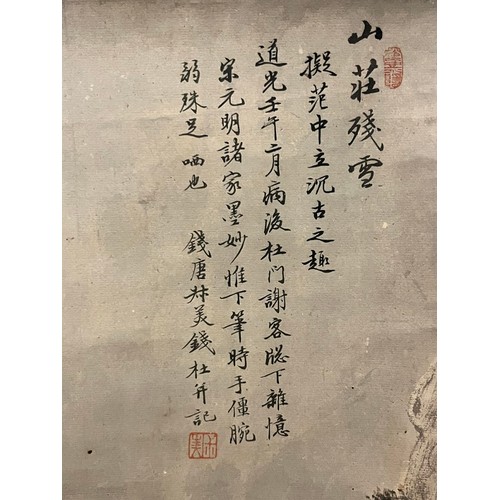 山莊殘雪
擬范中立沉古之趣
道光壬午二月病後杜门謝客牕下雜憶
宋元明諸家墨妙惟下筆時手僵腕
弱殊足哂也
錢唐叔美錢杜并記
叔美